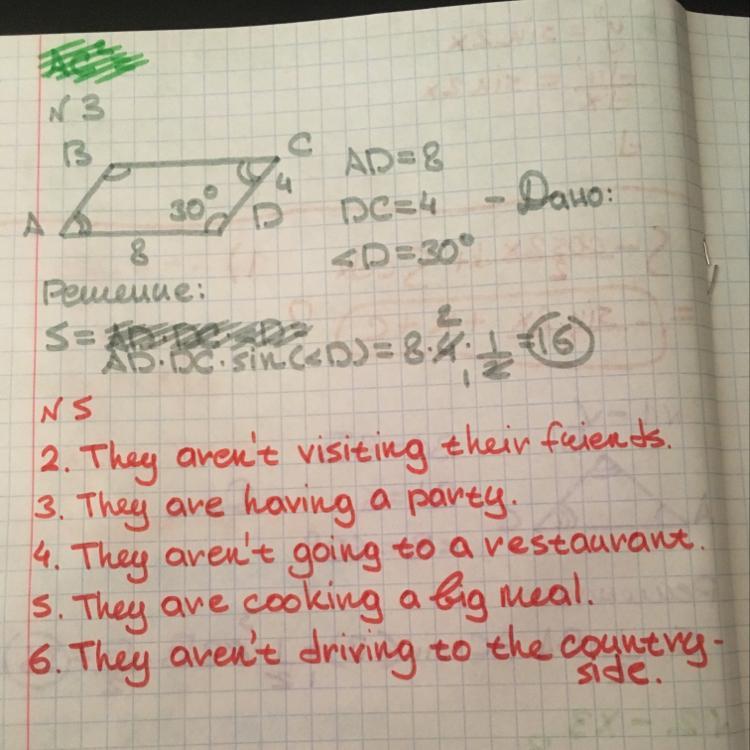 N 3
B C
4
A 30° D
8
AD=8
DC=4 - Дано:
<D=30°
Решение:
S=
AD·DC·sin(<D)=8·4·1/2=16
2
1
N 5
2. They aren't visiting their friends.
3. They are having a party.
4. They aren't going to a restaurant.
5. They are cooking a big meal.
6. They aren't driving to the country-
side.